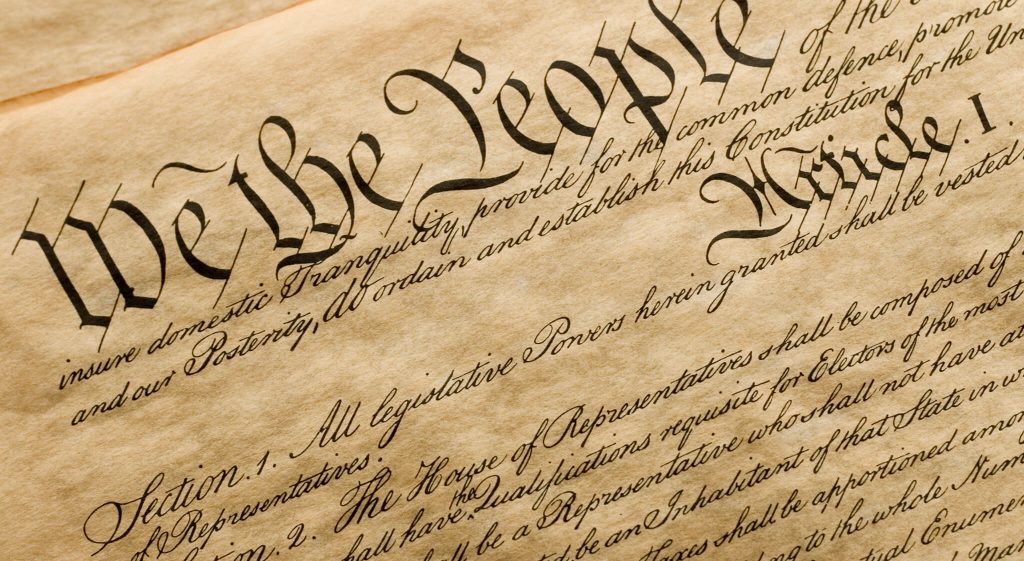 We the People of the
insure domestic Tranquility, provide for the common defence, promote
and our Posterity, do ordain and establish this Constitution for the Un
Article. I.
Section. 1. All legislative Powers herein granted shall be vested
of Representatives.
tion. 2. The House of Representatives shall be composed of
the
hall have Qualifications requisite for Electors of the most
ll be a Representative who shall not have at
ed be an Inhabitant of that State in w
Taxes shall be apportioned amon
ding to the whole Num
tual Enumer